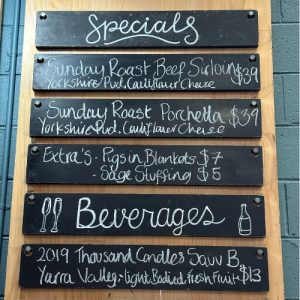 Specials
Sunday Roast Beef Sirloin $39
Yorkshire Pud, Cauliflower Cheese
Sunday Roast Porchetta $39
Yorkshire Pud, Cauliflower Cheese
Extra's - Pigs in Blankets $7
- Sage Stuffing $5
Beverages
2019 Thousand Candles Sauv B.
Yarra Valley - light Bodied, Fresh Fruit $13